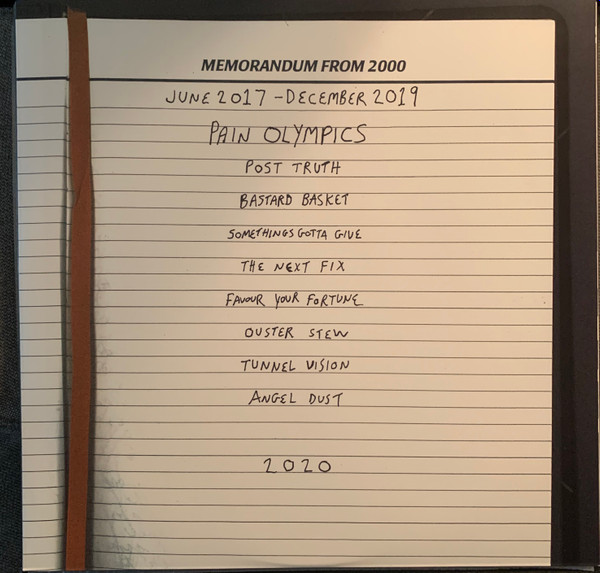 MEMORANDUM FROM 2000
JUNE 2017 - DECEMBER 2019
PAIN OLYMPICS
POST TRUTH
BASTARD BASKET
SOMETHINGS GOTTA GIVE
THE NEXT FIX
FAVOUR YOUR FORTUNE
OUSTER STEW
TUNNEL VISION
ANGEL DUST
2020